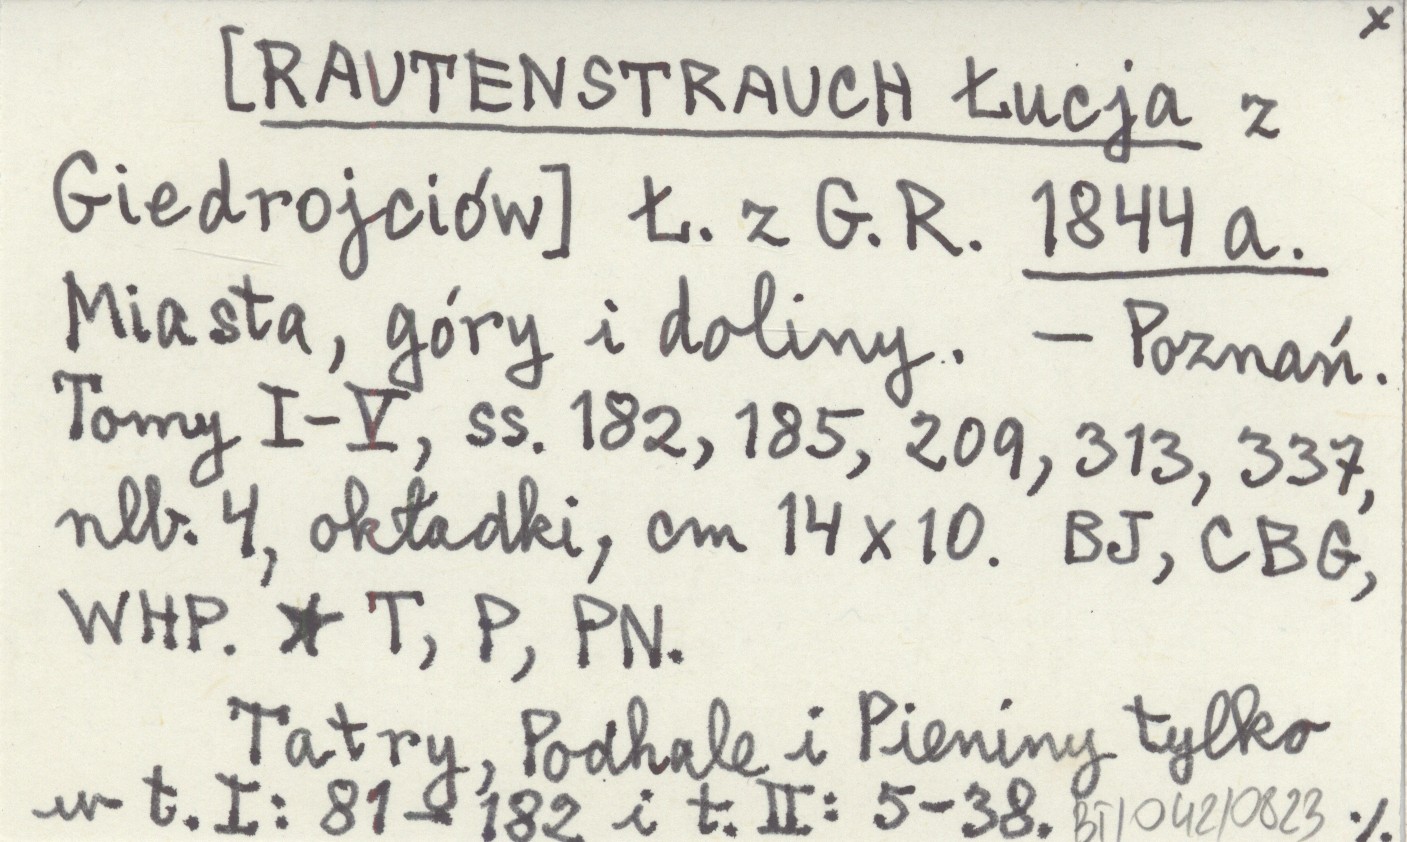 x
[RAUTENSTRAUCH Łucja z
Giedrojciów] Ł. z G.R. 1844 a.
Miasta, góry i doliny. – Poznań.
Tomy I–V, ss. 182, 185, 209, 313, 337,
nlb. 4, okładki, cm 14 x 10. BJ, CBG,
WHP. ★ T, P, PN.
Tatry, Podhale i Pieniny tylko
w t. I: 81 – 182 i t. II: 5–38. BT/042/0823 ./.